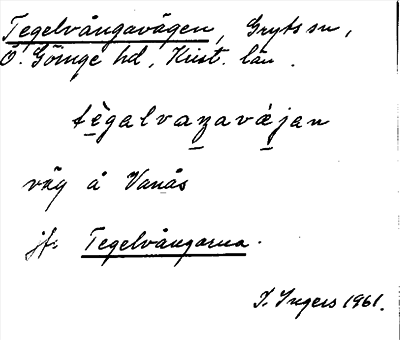 Tegelvångavägen, Gryts sn,
Ö. Göinge hd, Krist. län.
tègalvaŋavǽjan
väg å Vanås
jf. Tegelvångarna.
I. Ingers 1961.